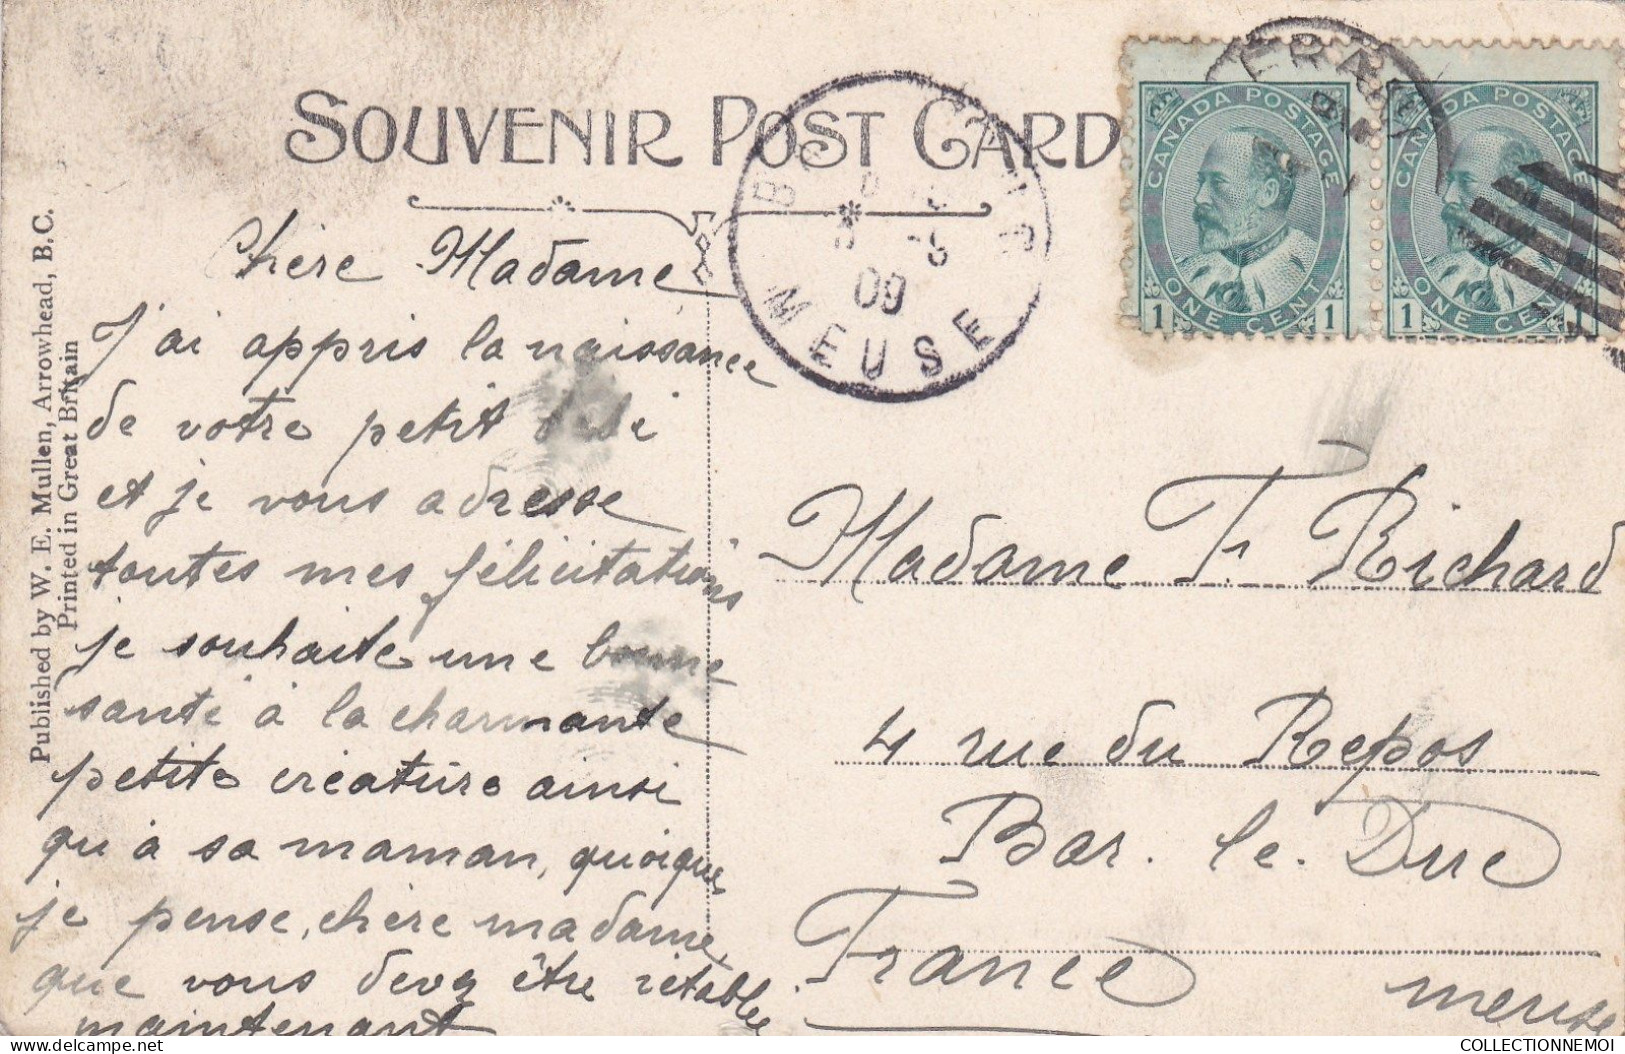 SOUVENIR POST CARD
CANADA POSTAGE
1 ONE CENT 1
CANADA POSTAGE
1 ONE CENT
09
MEUSE
Published by W. E. Mullen, Arrowhead, B. C.
Printed in Great Britain
Chère Madame
J'ai appris la naissance
de votre petit bébé
et je vous adresse
toutes mes félicitations
je souhaite une bonne
santé à la charmante
petite créature ainsi
qu'à sa maman, quoique
je pense, chère madame
que vous devez être rétablie
maintenant
Madame F. Richard
4 rue du Repos
Bar. le. Duc
France
Meuse
COLLECTIONNEMOI